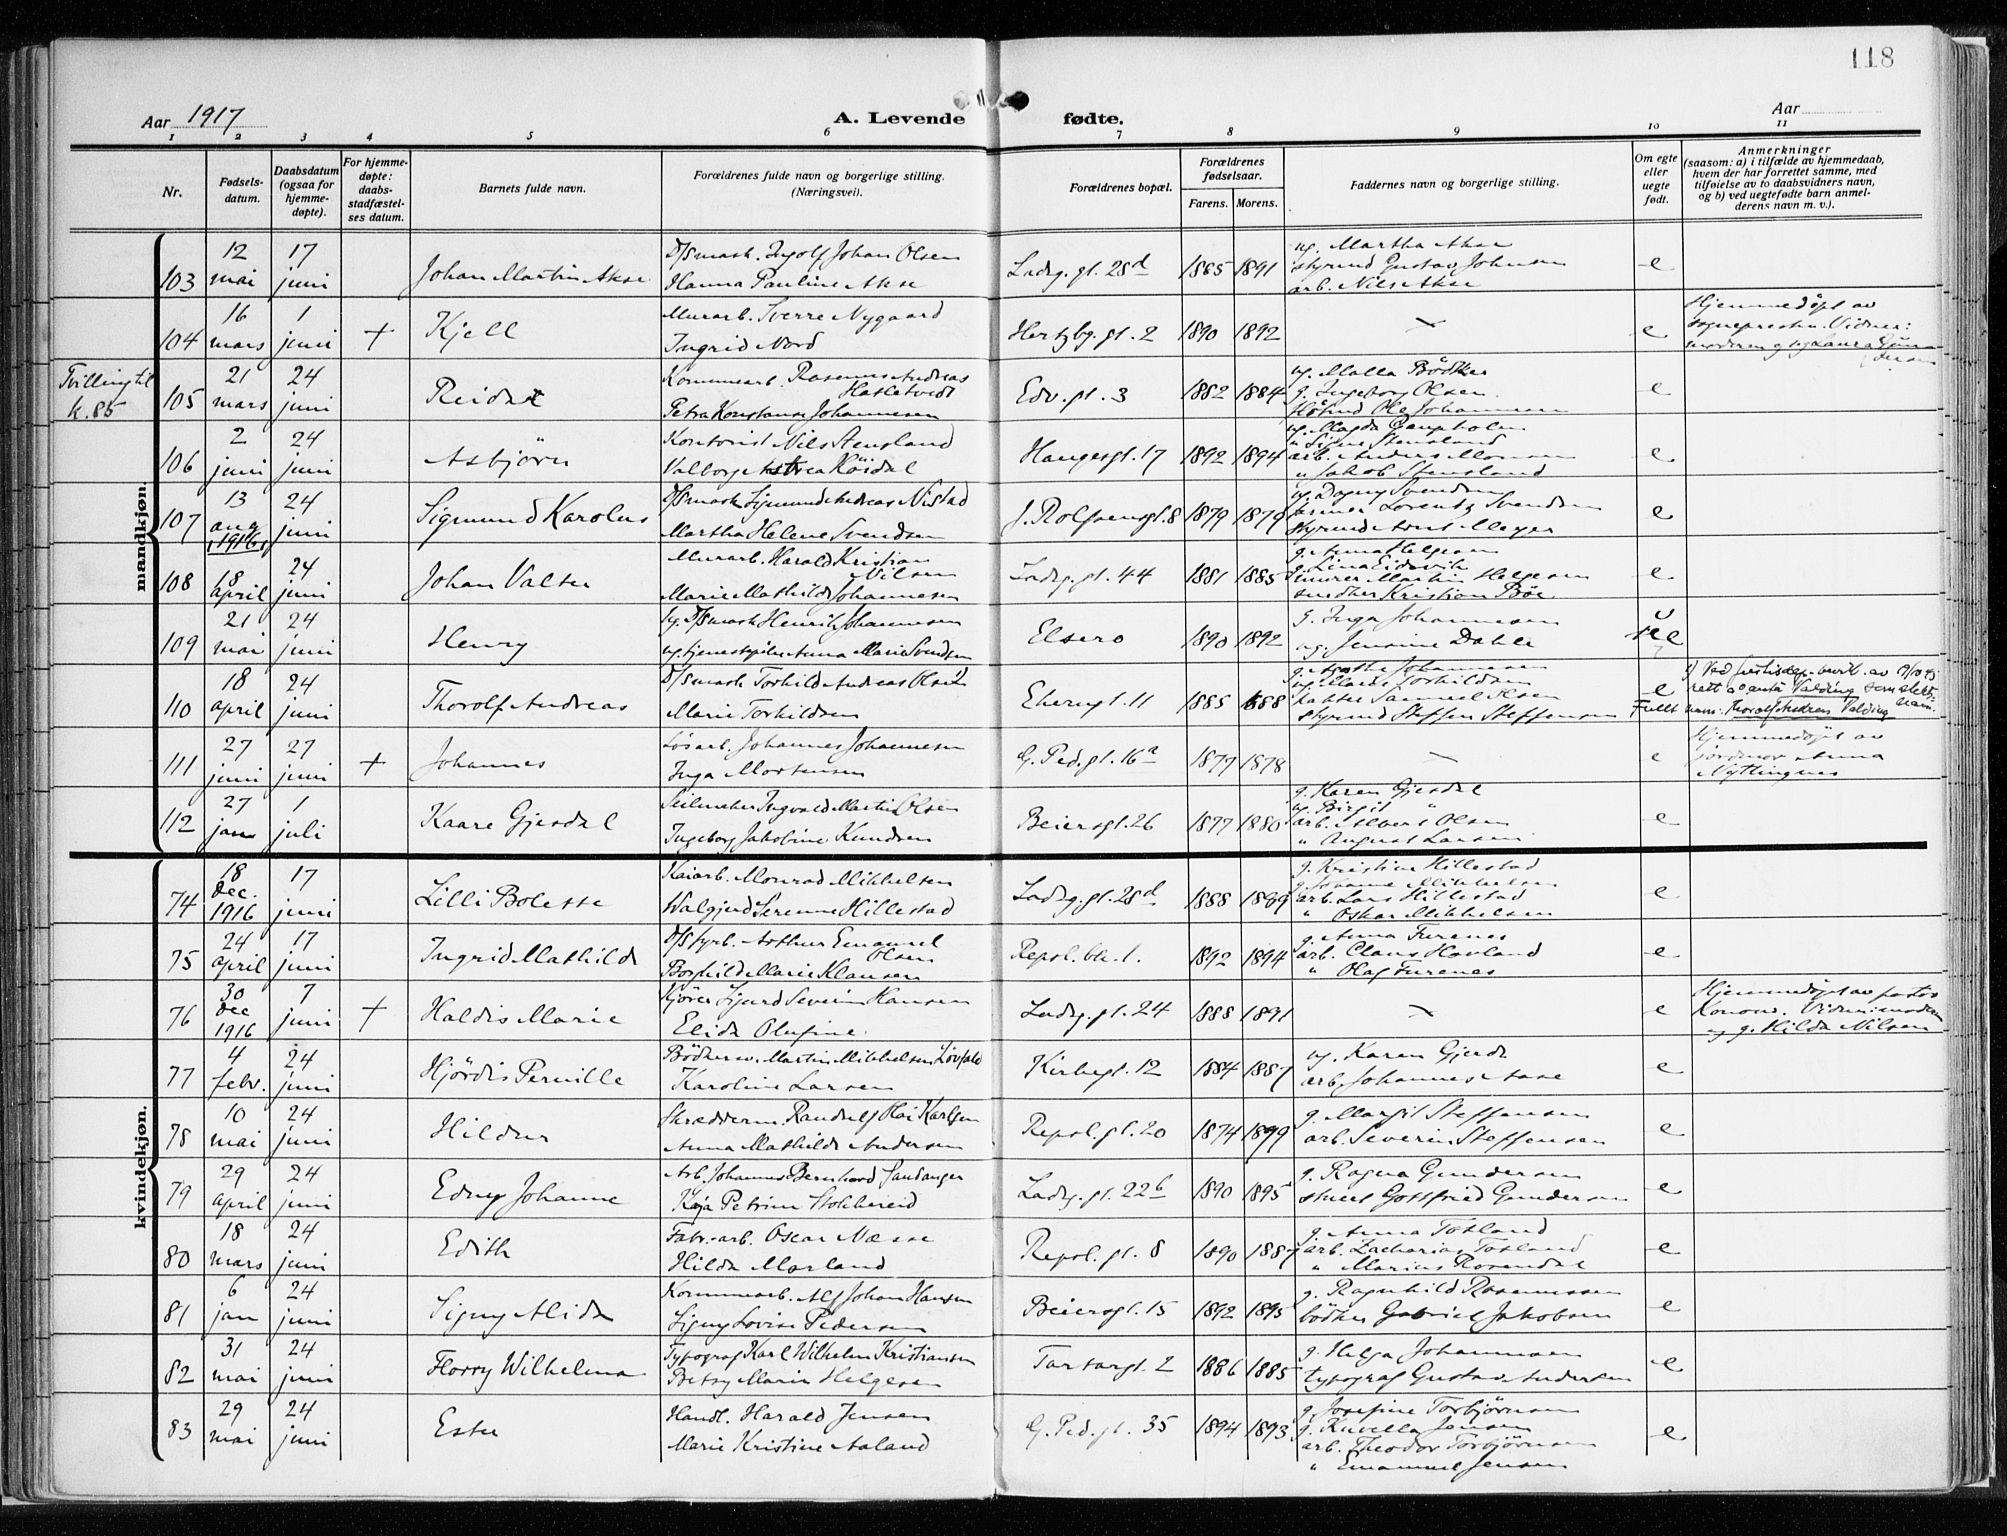 118
Aar 1917
A. Levende fødte.
Aar
1 2 3 4 5 6 7 8 9 10 11
Nr.
Fødsels-
datum.
Daabsdatum
(ogsaa for
hjemme-
døpte).
For hjemme-
døpte:
daabs-
stadfæstel-
ses datum.
Barnets fulde navn.
Forældrenes fulde navn og borgerlige stilling.
(Næringsvei).
Forældrenes bopæl.
Forældrenes
fødselsaar.
Farens. Morens.
Faddernes navn og borgerlige stilling.
Om egte
eller
uegte
født.
Anmerkninger
(saasom: a) i tilfælde av hjemmedaab,
hvem der har forrettet samme, med
tilføielse av to daabsvidners navn,
og b) ved uegtefødte barn anmel-
derens navn m. v.).
mandkjøn.
103 12 mai 17 juni Johan Martin Akse
D/Smask. Ingolf Johan Olsen
Hanna Pauline Akse
Ladeg. gt. 28d 1865 1891
ug. Martha Akse
styrmd Gustav Johnsen
arb. Nils Akse
e
104 16 mars 1 juni + Kjell
Murarb. Sverre Nygaard
Ingrid Nord
Hertzbg. gt. 2 1890 1892
e
Hjemmedøpt av
sognepresten. Vidner:
Tvilling til
k. 85
105 21 mars 24 juni Reidar
Kommunearb. Rasmus Andreas
Hatletvedt
Petra Konstanse Johannesen
Edv. gt. 3 1882 1884
ug. Malla Bödker
g. Ingeborg Olsen.
Ole Johannesen
e
106 2 juni 24 juni Asbjörn
Kontorist Nils Stensland
Valborg Astrea Röidal
Haugesgt. 17 1892 1894
ug. Magda
" Signe Stensland
arb. Anders Monsen
" Jakob Stensland
e
107 13 aug 1916 24 juni Sigmund Karolus
D/Smask Sigmund Andreas Nistad
Martha Helene Svendsen
J. Rolfsensgt. 8 1879 1879
ug. Dagny Svendsen
Lorentz Svendsen
styrmd Arnt Meyer
e
108 18 april 24 juni Johan Valter
Murarb. Harald Kristian
Nilsen
Marie Mathilde Johannesen
Ladeg. gt. 44 1881 1885
g. Anna Helgesen
g. Lina Eidsvik
Martin Helgesen
smedker Kristian Böe
e
109 21 mai 24 juni Henry
Ug. D/Smask Henrik Johannesen
ug. tjenestepike Anna Marie Svendsen
Elsero 1890 1892
g. Inga Johannesen
ug. Jensine Dahle
110 18 april 24 juni Thorolf Andreas
D/Smask Torkild Andreas Olsen
Marie Torkildsen
Ekerengt. 11 1885 1888
g. Agathe Johannesen
ug. Marie Torkildsen
Samuel Olsen
styrmd Steffen Steffensen
e
Fullt
rett å anta Valding som slekts-
navn: Thorolf Andreas Valding
111 27 juni 27 juni + Johannes
Løsarb. Johannes Johannesen
Inga Mortensen
G. Ped. gt. 16a 1877 1878
e
Hjemmedøpt av
jordmor Anna
112 27 jan 1 juli Kaare Gjesdal
Seilmaker Ingvald Martin Olsen
Ingeborg Jakobine Knudsen
Beiersgt. 26 1877 1880
g. Karen Gjesdal
ug. Birgit "
arb. Albert Olsen
" August Larsen
e
kvindekjøn.
74 18 dec. 1916 17 juni Lilli Bolette
Kaiarb. Monrad Mikkelsen
Walgjerd Serenne Hillestad
Ladeg. gt. 28d 1888 1889
g. Kristine Hillestad
g. Johanne Mikkelsen
arb. Lars Hillestad
" Oskar Mikkelsen
e
75 24 april 17 juni Ingrid Mathilde
D/Sfyrb. Arthur Emanuel
Olsen
Borghild Marie Klausen
Repsl. bk. 1. 1892 1894
g. Anna Furenes
arb. Claus Hovland
" Olaf Furenes
e
76 30 dec 1916 7 juni + Haldis Marie
Kjører Sigurd Severin Hansen
Elida Olufine
Ladeg. gt. 24 1888 1891
e
Hjemmedøpt av pastor
Konow. Vidner: moderen
og g. Hilda Nilsen
77 4 febr. 24 juni Hjørdis Pernille
Bödkersv. Martin Mikkelsen Lövfald
Karoline Larsen
Kirkegt. 12 1884 1887
ug. Karen Gjerde
arb. Johannes Aase
e
78 10 mai 24 juni Hildur
Skrædderm. Randulf Olai Karlsen
Anna Mathilde Andersen
Repsl. gt. 20 1874 1899
g. Margit Steffensen
arb. Severin Steffensen
e
79 29 april 24 juni Edny Johanne
Arb. Johannes Bernhard Sandanger
Kaja Petrine Stokkereid
Ladeg. gt. 22b 1890 1895
g. Ragna Gundersen
Gottfried Gundersen
e
80 18 mars 24 juni Edith
Fabr.-arb. Oscar Næsse
Hilda Morland
Repsl. gt. 8 1890 1887
g. Anna Totland
arb. Zacharias Totland
" Marius Rosendal
e
81 6 jan 24 juni Signy Alida
Kommunearb. Alf Johan Hansen
Signy Lovise Pedersen
Beiersgt. 15 1892 1895
g. Ragnhild Rasmussen
bödker Gabriel Jakobsen
e
82 31 mai 24 juni Florry Wilhelmina
Typograf Karl Wilhelm Kristiansen
Betsy Marie Helgesen
Tartargt. 2 1886 1885
g. Helga Johannesen
typograf Gustav Andersen
e
83 29 mai 24 juni Ester
Handl. Harald Jensen
Marie Kristine Aaland
G. Ped. gt. 35 1894 1893
g. Josefine Torbjörnsen
g. Jensen
arb. Theodor Torbjörnsen
" Emanuel Jensen
e